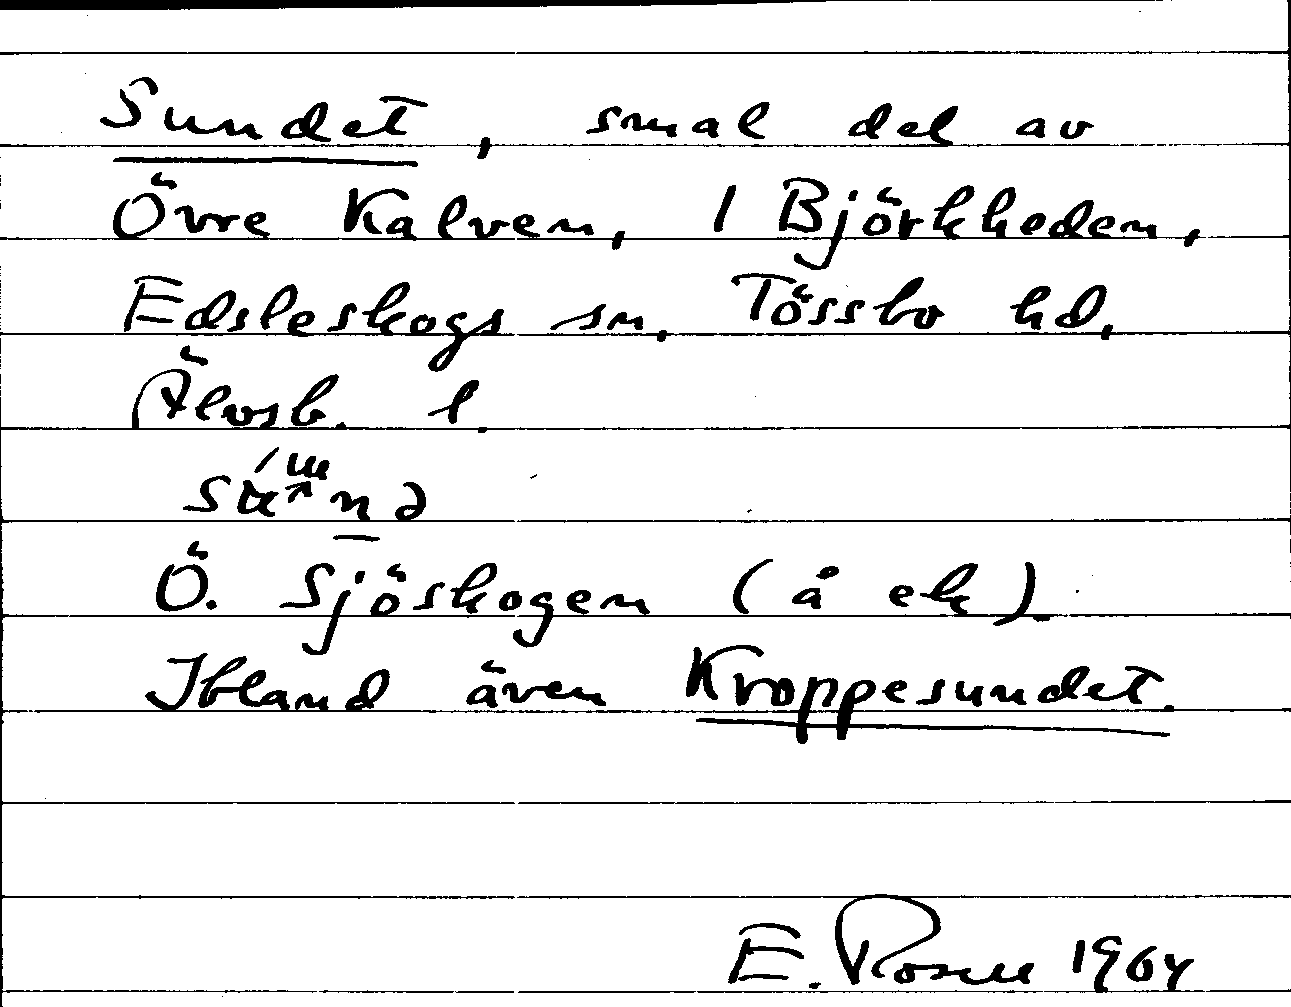 Sundet, smal del av
Övre Kalven, 1 Björkheden,
Edsleskogs sn. Tössbo hd.
Älvsb. l.
Ö. Sjöskogen (å ek).
Ibland även Kroppesundet.
E. Rosell 1964